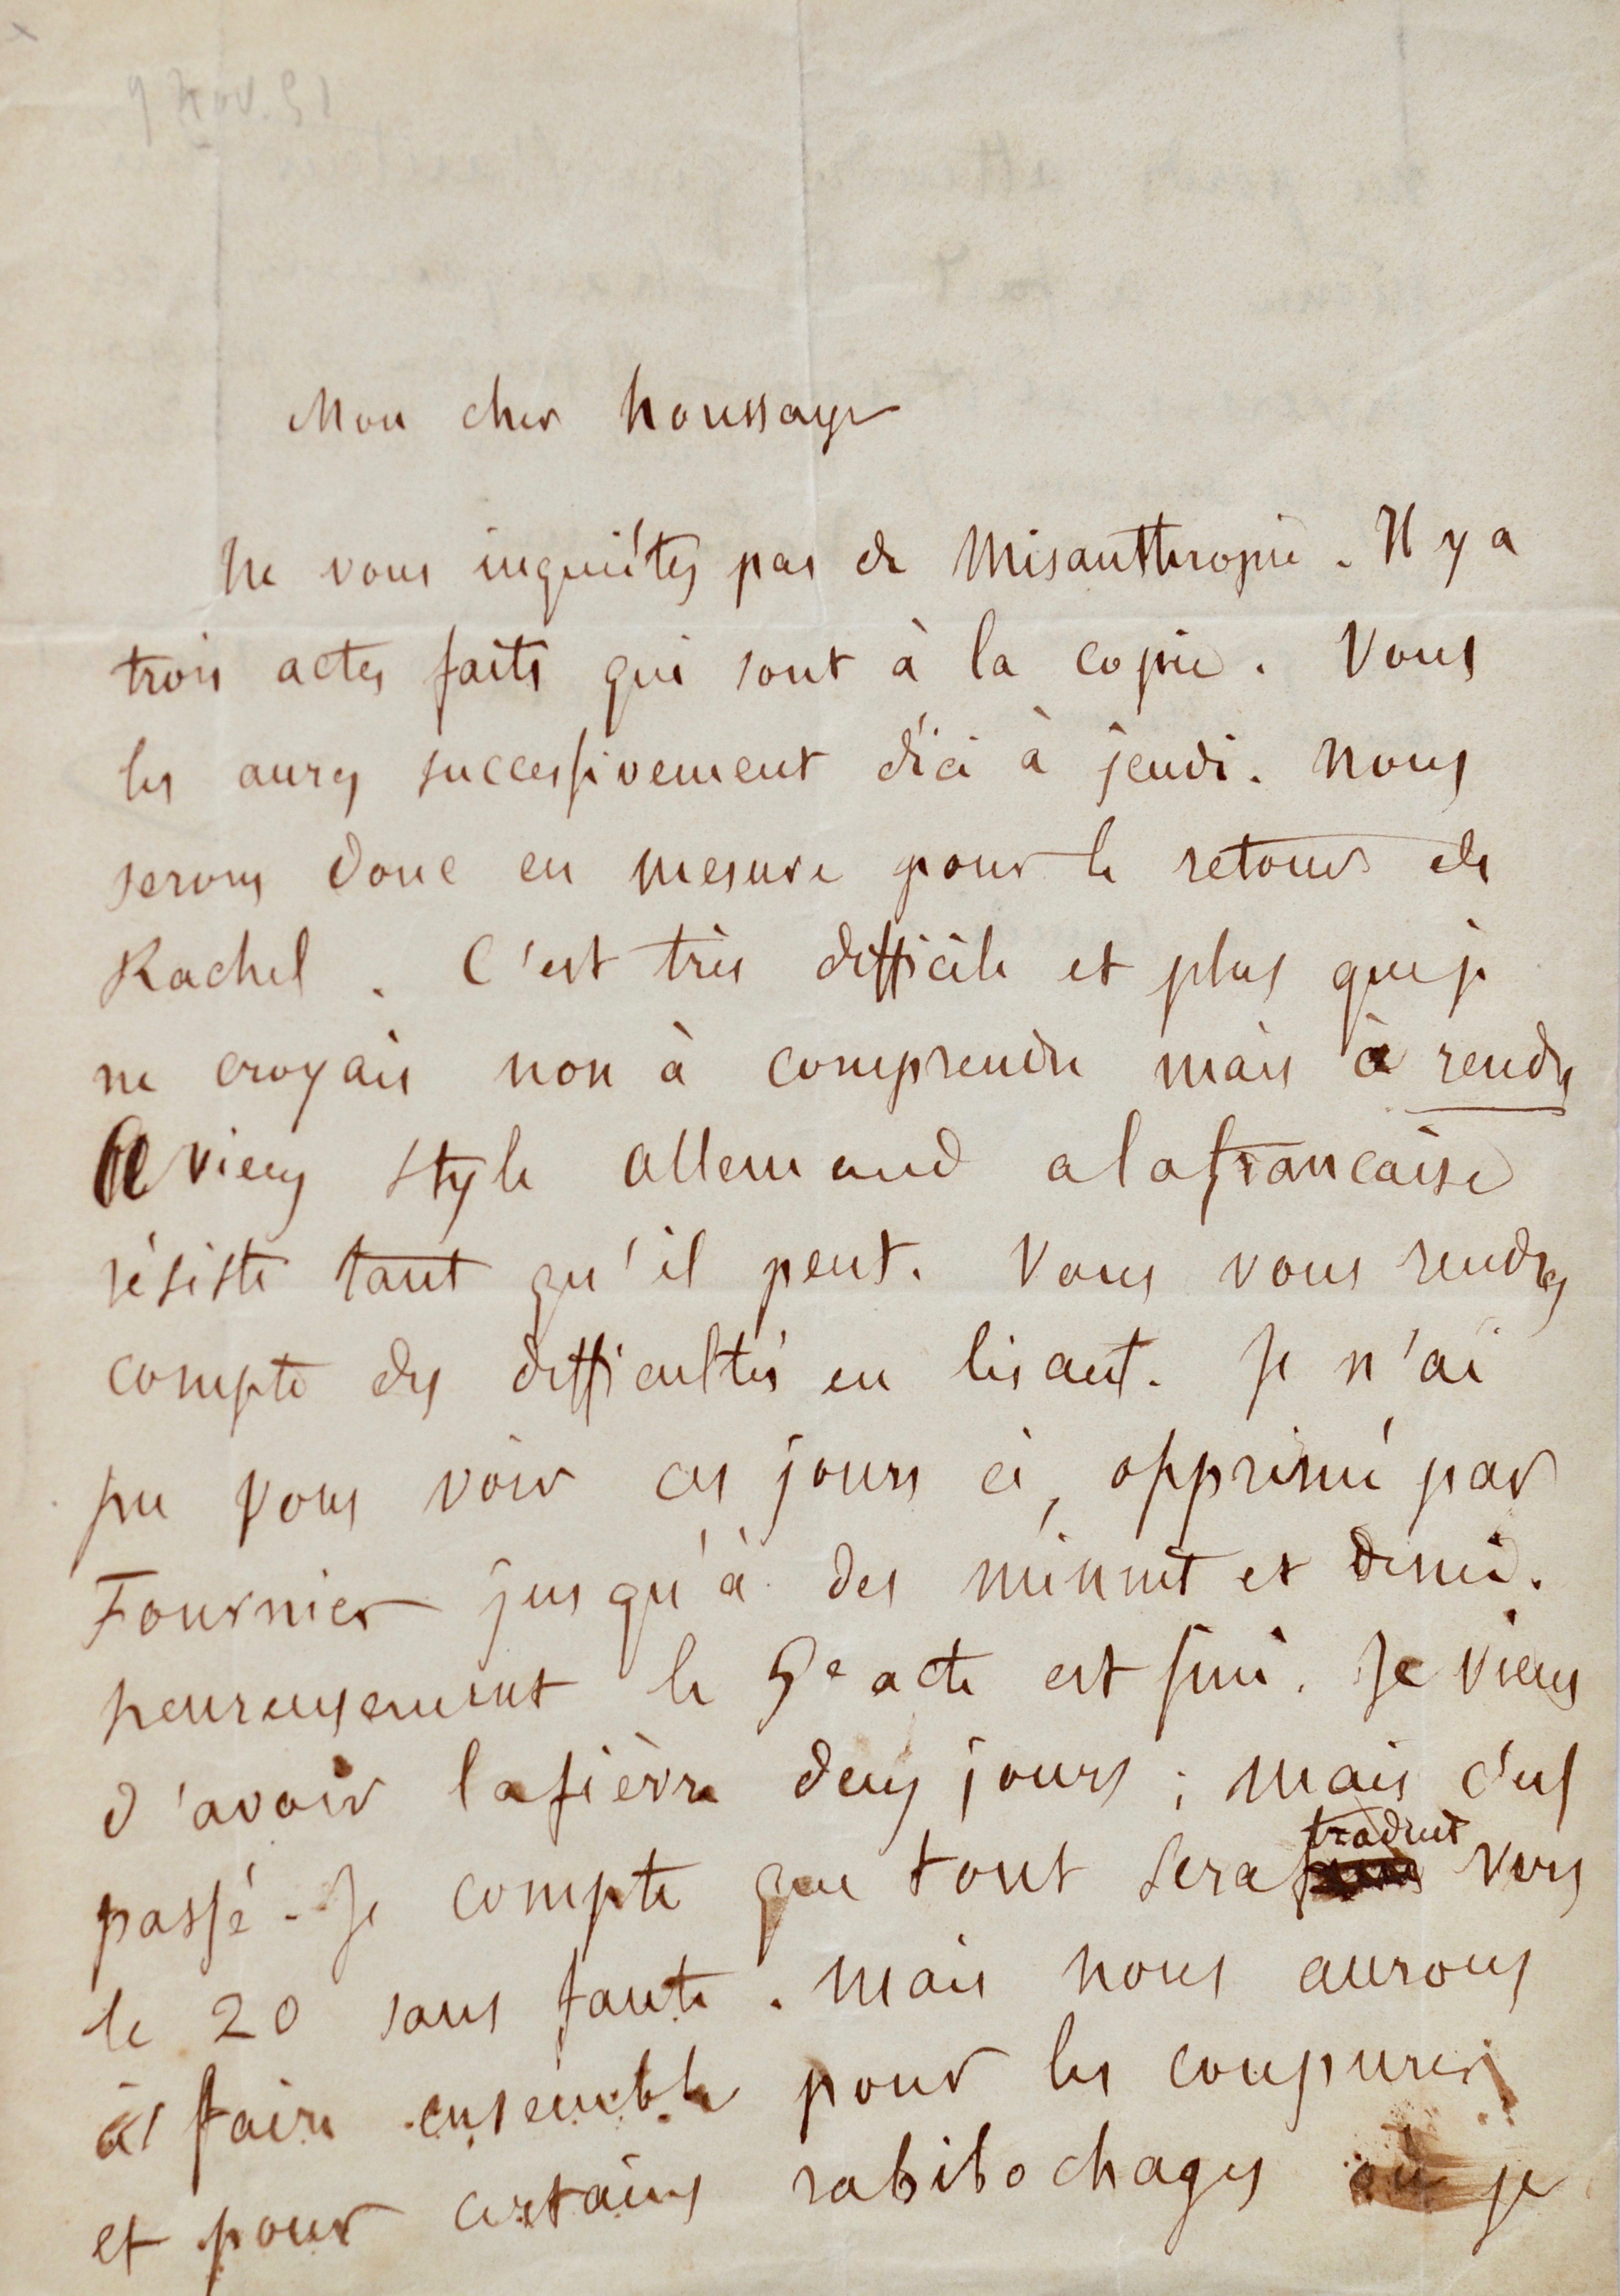 9 Nov. 51
Mon cher houssaye
Ne vous inquiétez pas de Misanthropie. Il y a
trois actes faits qui sont à la copie. Vous
les aurez successivement d'ici à jeudi. Nous
serons donc en mesure pour le retour de
Rachel. C'est très difficile et plus que je
ne croyais non à comprendre mais à rendre
Ce vieux style allemand a la francaise
résiste tant qu'il peut. Vous vous rendrez
compte des difficultés en lisant. Je n'ai
pu vous voir ces jours ci, opprimé par
Fournier jusqu'à des minuit et demie.
heureusement le 5e acte est fini. Je viens
d'avoir la fièvre deux jours ; mais c'est
passé. Je compte que tout sera traduit vers
le 20 sans faute. Mais nous aurons
à faire ensemble pour les coupures
et pour certains rabibochages où je